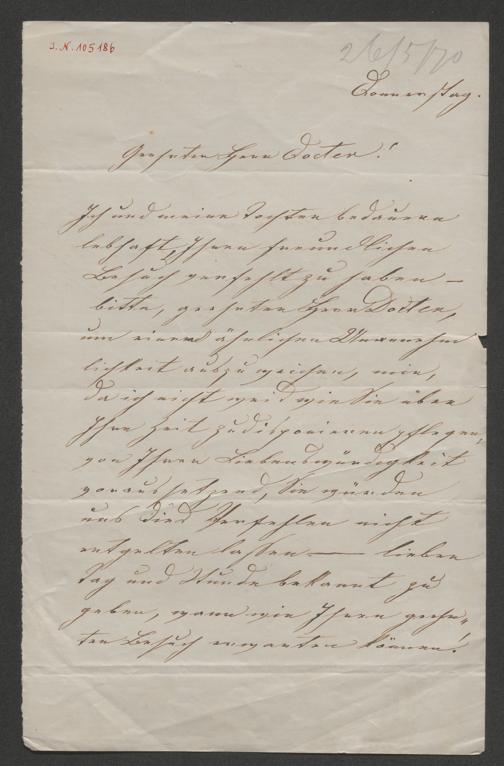 J.N. 105186
26/5/70
Donnerstag.
Geehrter Herr Docter!
Ich und meine Tochter bedauern
lebhaft, Ihren freundlichen
Besuch verfehlt zu haben —
bitte, geehrter Herr Docter,
um einer ähnlichen Unannehm
lichkeit auszuweichen, mir,
da ich nicht weiß wie Sie über
Ihre Zeit zu disponieren pflegen,
von Ihrer Liebenswürdigkeit
voraussetzend, Sie würden
uns dies Verfehlen nicht
entgelten lassen — lieber
Tag und Stunde bekannt zu
geben, wann wir Ihren geehr„
ten Besuch erwarten können!